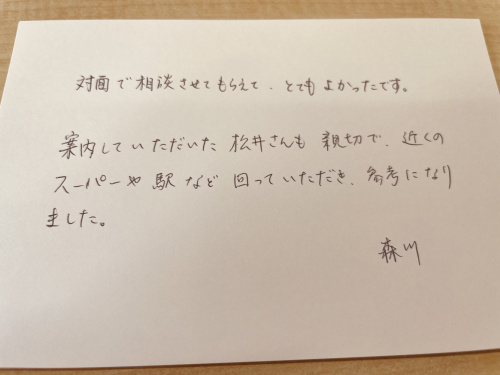 対面で相談させてもらえて、とてもよかったです。
案内していただいた松井さんも親切で、近くの
スーパーや駅など回っていただき、参考になり
ました。
森川